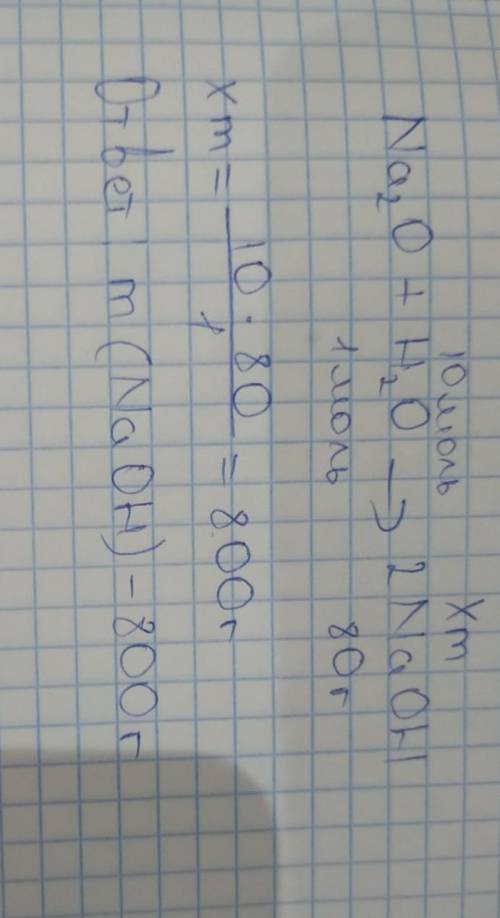 10 моль xm
Na₂O + H₂O → 2NaOH
1 моль 80 г
xm = 10 · 80 / 1 = 800 г
Ответ m (NaOH) – 800 г